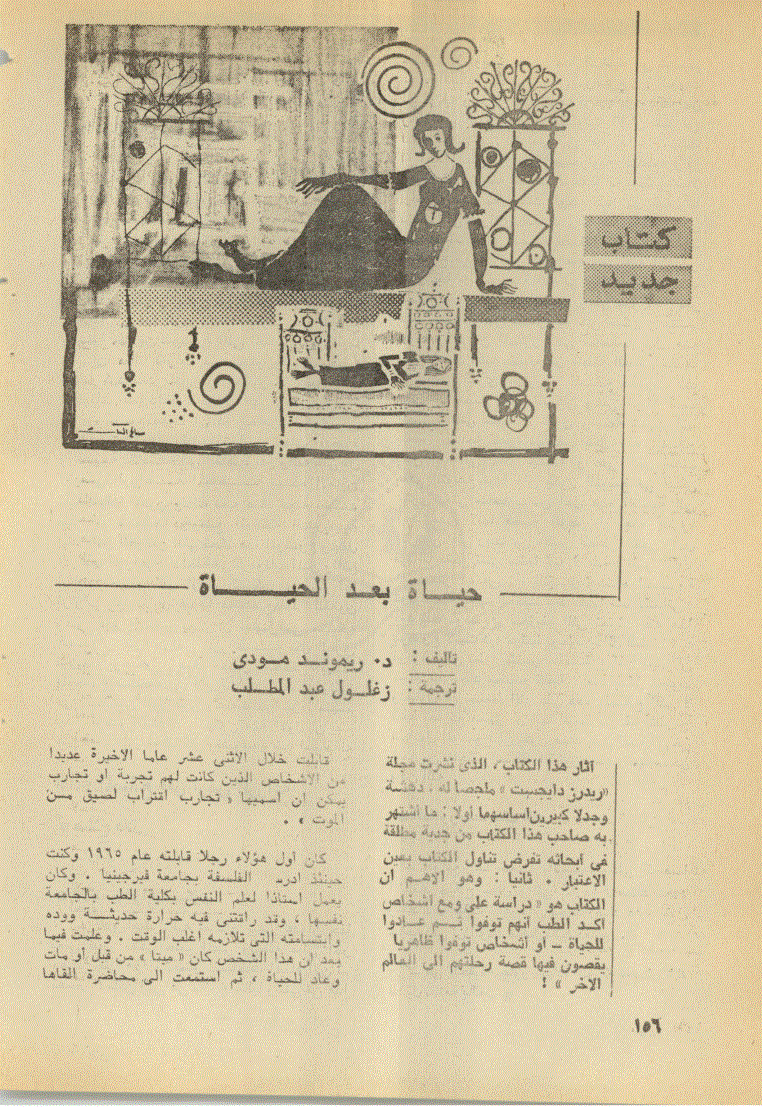 كتاب
جديد
حيـــاة بعد الحيـــــاة
تاليف : د٠ ريمونــد مــودى
ترجمة : زغلــول عبد المطــلب
آثار هذا الكتاب ، الذى نشرت مجلة
«ريدرز دايجست » ملخصا له . دهشة
وجدلا كبيرين اساسهما أولا : ما اشتهر
به صاحب هذا الكتاب من جدية مطلقة
فى ابحاثه تفرض تناول الكتاب بعين
الاعتبار . ثانيا : وهو الاهم ان
الكتاب هو « دراسة على ومع اشخاص
اكد الطب انهم توفوا ثــم عــادوا
للحياة ــ أو اشخاص توفوا ظاهريا
يقصون فيها قصة رحلتهم الى العالم
الآخر » !
قابلت خلال الاثنى عشر عاما الاخيرة عديدا
من الاشخاص الذين كانت لهم تجربة او تجارب
يمكن ان اسميها « تجارب اقتراب لصيق مــن
الموت » .
كان اول هؤلاء رجلا قابلته عام ١٩٦٥ وكنت
حينئذ ادرس الفلسفة بجامعة فيرجينيا . وكان
يعمل استاذا لعلم النفس بكلية الطب بالجامعة
نفسها ، وقد راقتنى فيه حرارة حديثــــة ووده
وابتسامته التى تلازمه اغلب الوقت . وعلمت فيما
بعد ان هذا الشخص كان « ميتا » من قبل او مات
وعاد للحياة ، ثم استمعت الى محاضرة القاها
١٥٦